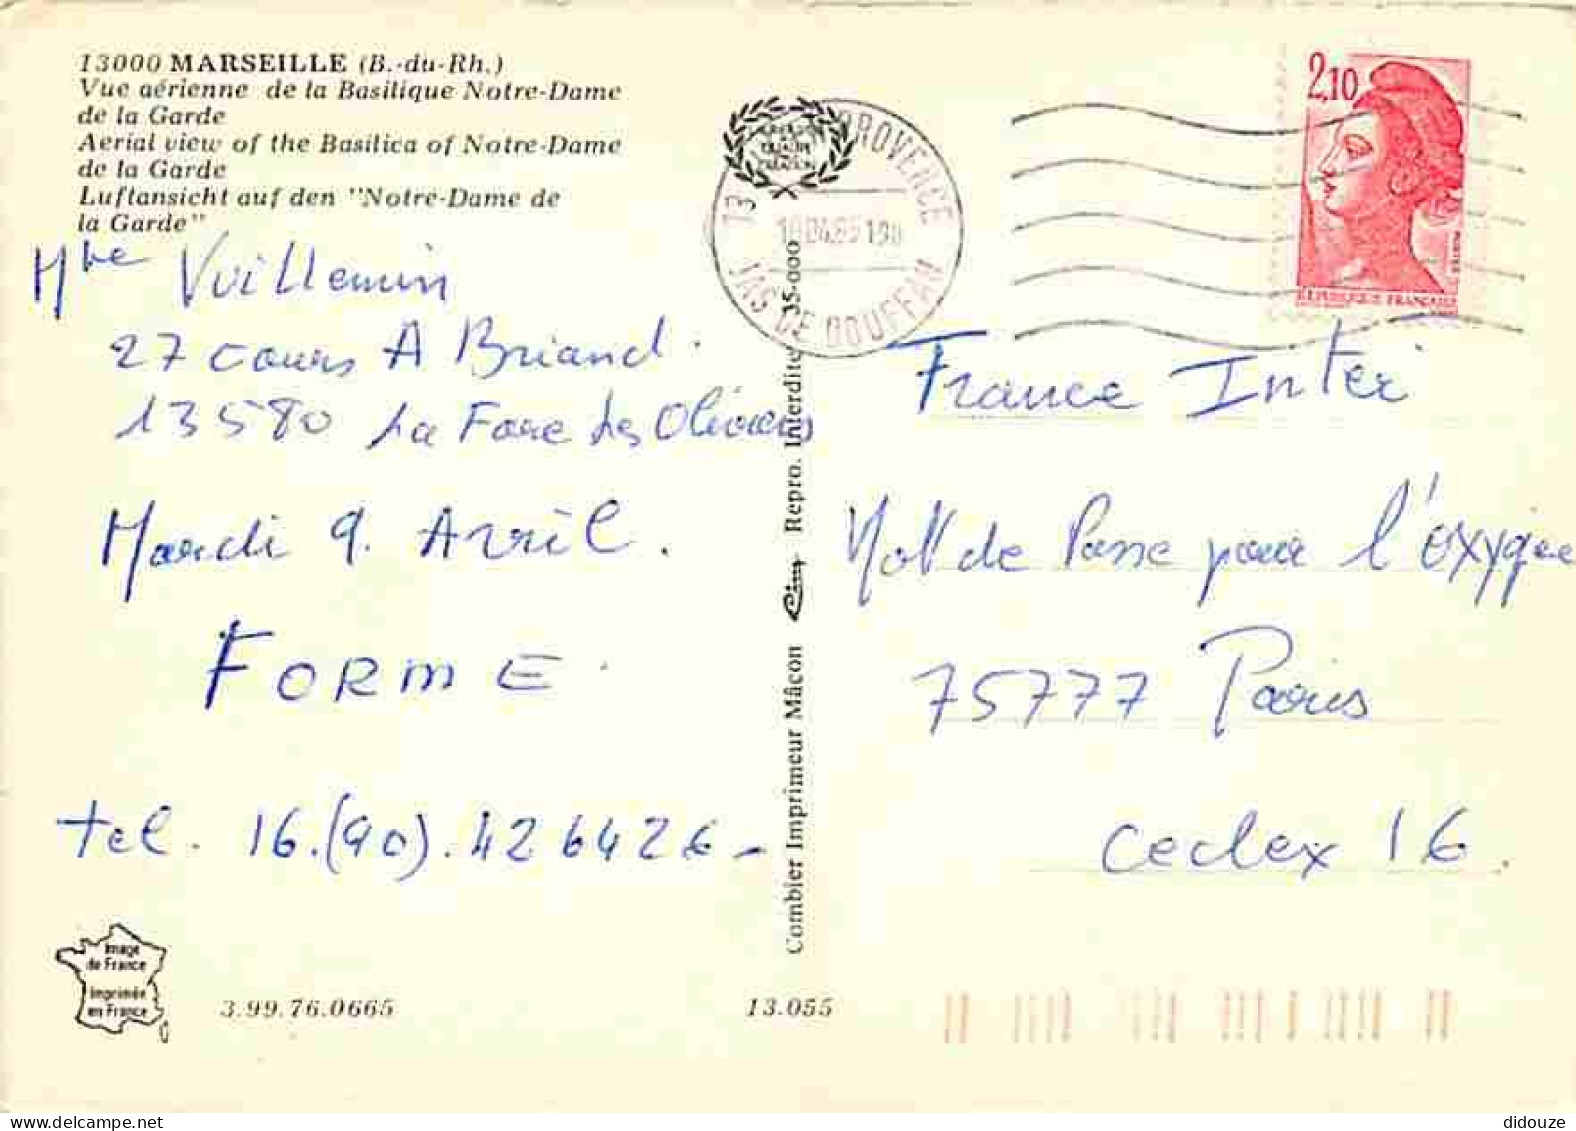 13000 MARSEILLE (B.-du-Rh.)
Vue aérienne de la Basilique Notre-Dame
de la Garde
Aerial view of the Basilica of Notre-Dame
de la Garde
Luftansicht auf den "Notre-Dame de
la Garde"
Mme Vuillemin
27 cours A Briand.
13580 La Fare les Oliviers
Mardi 9. Avril.
FORME.
tel. 16.(90).426426_
Image
de France
Imprimée
en France
3.99.76.0665
13.055
Combier Imprimeur Mâcon Cim Repro. Interdite 35-000
13 PROVENCE
JAS DE BOUFFAN
2,10
REPUBLIQUE FRANÇAISE
France Inter
Mot de Passe pour l'oxygène
75777 Paris
cedex 16.
didouze